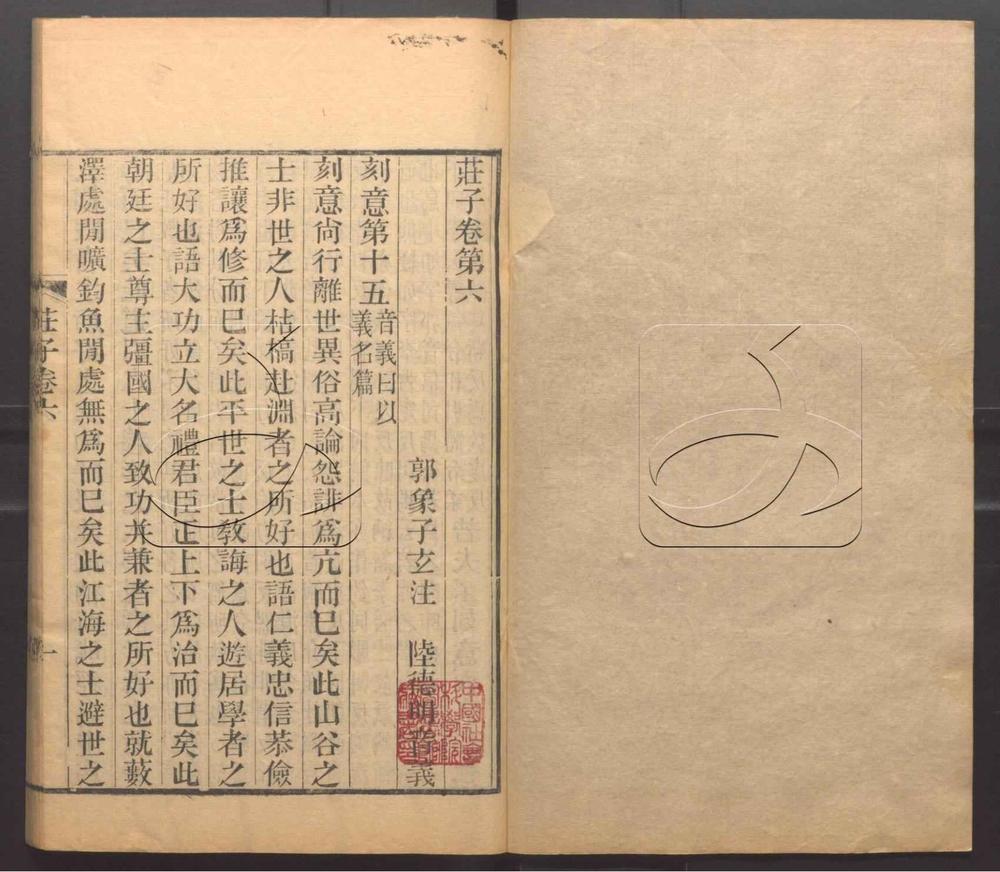 莊子卷第六
郭象子玄注 陸德明音義
刻意第十五音義曰以義名篇
刻意尙行離世異俗高論怨誹爲亢而已矣此山谷之
士非世之人枯槁赴淵者之所好也語仁義忠信恭儉
推讓爲修而已矣此平世之士敎誨之人遊居學者之
所好也語大功立大名禮君臣正上下爲治而已矣此
朝廷之士尊主彊國之人致功并兼者之所好也就藪
澤處閒曠釣魚閒處無爲而已矣此江海之士避世之
莊子卷六
一